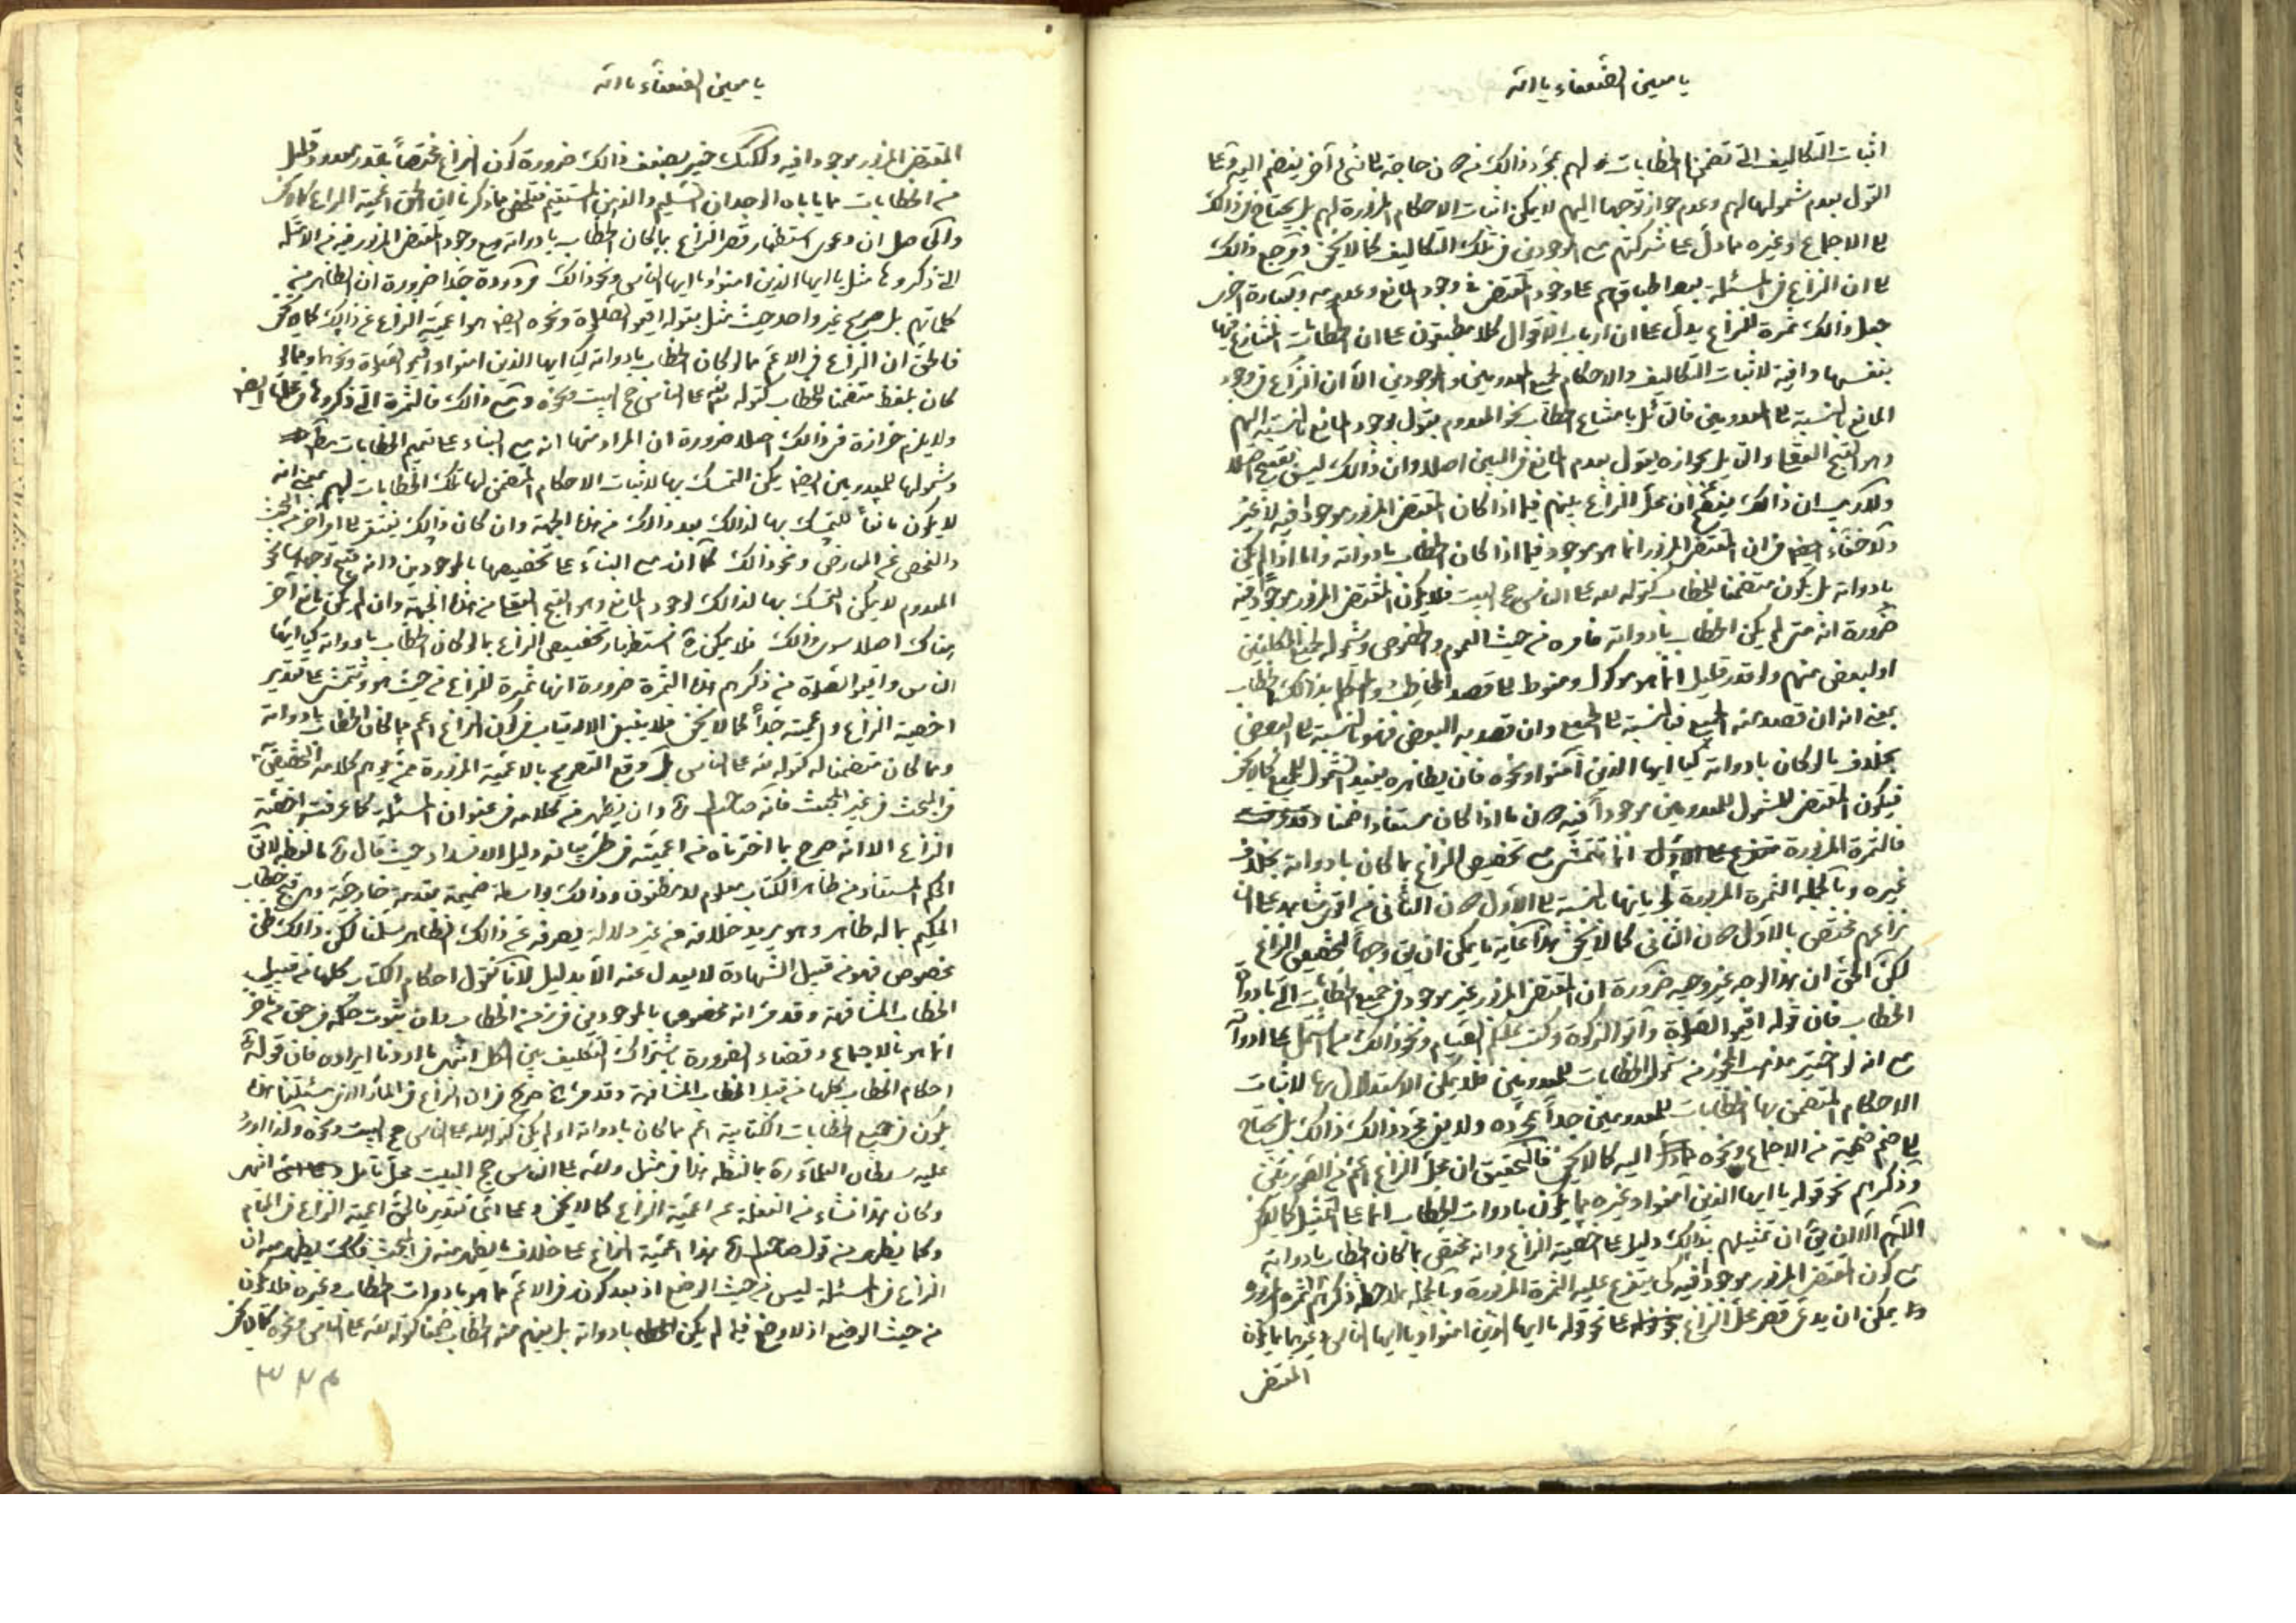 يا معين الضعفاء يا الله
اثبات التكاليف التي تضمن الخطابات لهم بمجرد ذالك من حاجة الى شيء آخر ينضم اليه وعلى
القول بعدم شمولها لهم وعدم جواز توجهها اليهم لا يمكن اثبات الاحكام المزبورة لهم بل يحتاج في ذالك
الى الاجماع وغيره مما دل على شركتهم مع الموجودين في تلك التكاليف كما لا يخفى ومرجع ذالك
الى ان النزاع في المسئلة بعد اطباقهم على وجود المقتضى في وجود المانع وعدمه وبعبارة اخرى
جعل ذالك ثمرة للنزاع يدل على ان ارباب الاقوال كلا مطبقون على ان الخطابات المتنازع فيها
بنفسها وافية لاثبات التكاليف والاحكام لجميع المعدومين والموجودين الا ان النزاع في وجود
المانع بالنسبة الى المعدومين فالقائل بامتناع خطاب نحو المعدوم يقول بوجود المانع بالنسبة اليهم
وهو القبح العقلي والقائل بجوازه يقول بعدم المانع في البين اصلا وان ذالك ليس بقبيح اصلا
ولا ريب ان ذالك ان محل النزاع بينهم فيما اذا كان المقتضى المزبور موجودا فيه لا غير
ولا خفاء ايضا في ان المقتضى المزبور انما هو موجود فيما اذا كان الخطاب بادواته واما اذا لم يكن
بادواته بل يكون متضمنا للخطاب كقوله لله على الناس حج البيت فلا يكون المقتضى المزبور موجودا فيه
ضرورة انه متى لم يكن الخطاب بادواته فامره من حيث العموم والخصوص وشموله لجميع المكلفين
او لبعض منهم ولو قدر قليل انما هو موكول ومنوط الى قصد المخاطب والمتكلم بذالك الخطاب
بمعنى انه ان قصد منه الجميع فبالنسبة الى الجميع وان قصد به البعض فهو بالنسبة الى البعض
بخلاف ما لو كان بادواته كيا ايها الذين آمنوا ونحوه فان بظاهره يفيد الشمول للجميع كما لا يخفى
فيكون المقتضى للشمول للمعدومين موجودا فيه ما اذا كان مستفادا ضمنا
فالثمرة المزبورة انما تتمشى مع تخصيص النزاع بما كان بادواته بخلاف
غيره وبالجملة الثمرة المزبورة بالنسبة الى الاول الثاني من اقوى شاهد على ان
نزاعهم مختص بالاول الثاني كما لا يخفى هذا غاية ما يمكن ان يق وجها لتخصيص النزاع
لكن الحق ان هذا الوجه غير وجيه ضرورة ان المقتضى المزبور غير موجود في جميع الخطابات التي بادوات
الخطاب فان قوله اقيموا الصلوة وآتوا الزكوة وكتب عليكم الصيام ونحو ذالك اشتمل على ادواته
مع انه لو اختير مذهب المجوز من شمول الخطابات للمعدومين فلا يمكن الاستدلال بها لاثبات
الاحكام المتضمن بها الخطابات للمعدومين جدا بمجرده ولا يفي مجرد ذالك ذالك بل يحتاج
الى ضم ضميمة من الاجماع ونحوه اليه كما لا يخفى فالتحقيق ان محل النزاع اعم من القسمين
وذكرهم نحو قوله يا ايها الذين آمنوا وغيره مما يكون بادوات الخطاب انما على التمثيل كما لا يخفى
اللهم الا ان يق ان تمثيلهم بذالك دليل على اخصية النزاع وانه مختص بما كان الخطاب بادواته
كون المقتضى المزبور موجودا فيه كي يتفرع عليه الثمرة المزبورة وبالجملة بملاحظة ذكرهم الثمرة المزبورة
يمكن ان يدعى قصر محل النزاع على نحو قوله يا ايها الذين امنوا ويا ايها الناس وغيرهما مما يكون
المقتضى
يا معين الضعفاء يا الله
المقتضى المزبور موجودا فيه ولكنك خبير بضعف ذالك ضرورة كون النزاع مختصا بقدر معدود قليل
من الخطابات مما ياباه الوجدان السليم والذهن المستقيم فتلخص مما ذكرنا ان الحق اعمية النزاع كما لا يخفى
والحاصل ان دعوى استظهار قصر النزاع بما كان الخطاب بادواته مع وجود المقتضى المزبور فيه من الامثلة
التي ذكروها مثل يا ايها الذين امنوا ويا ايها الناس ونحو ذالك مردودة جدا ضرورة ان الظاهر من
كلماتهم بل صريح غير واحد حيث مثل بقوله اقيموا الصلوة ونحوه ايضا هو اعمية النزاع عن ذالك كما لا يخفى
فالحق ان النزاع في الاعم مما لو كان الخطاب بادواته كيا ايها الذين امنوا واقيموا الصلوة ونحوهما ومما لو
كان بلفظ متضمنا للخطاب كقوله لله على الناس حج البيت ونحوه ومع ذالك فالثمرة التي ذكروها في محلها ايضا
ولا يلزم حزازة في ذالك اصلا ضرورة ان المراد منها انه مع البناء على تعميم الخطابات
وشمولها للمعدومين ايضا يمكن التمسك بها لاثبات الاحكام المتضمن لها تلك الخطابات لهم بمعنى انه
لا يكون مانعا للتمسك بها لذالك بعد ذالك من هذه الجهة وان كان ذالك يفتقر الى امر آخر من
والفحص عن المعارض ونحو ذالك كما ان مع البناء على تخصيصها بالموجودين وانه قبح توجهها نحو
المعدوم لا يمكن التمسك بها لذالك لوجود المانع وهو القبح العقلي من هذه الجهة وان لم يكن مانع آخر
هناك اصلا سوى ذالك فلا يمكن استظهار تخصيص النزاع بما لو كان الخطاب بادواته كيا ايها
الناس واقيموا الصلوة من ذكرهم هذه الثمرة ضرورة انها ثمرة للنزاع من حيث هو وتتمشى على تقدير
اخصية النزاع واعميته جدا كما لا يخفى فلا ينبغي الارتياب في كون النزاع اعم مما كان الخطاب بادواته
ومما كان متضمنا له كقوله لله على الناس بل وقع التصريح بالاعمية المزبورة
في المبحث في غير المبحث فانه وان يظهر من كلامه في عنوان المسئلة كما عرفت اخصية
النزاع الا انه صرح بما اخترناه من اعميته في طي بيانه دليل الانسداد حيث قال ما لفظه لانا
الحكم المستفاد من ظاهر الكتاب معلوم لا مظنون وذالك بواسطة ضميمة مقدمة خارجية وهي قبح خطاب
الحكيم بما له ظاهر وهو يريد خلافه من غير دلالة يصرفه عن ذالك الظاهر سلمنا لكن ذالك ظن
مخصوص فهو من قبيل الشهادة لا يعدل عنه الا بدليل لانا نقول احكام الكتاب كلها من قبيل
الخطاب المشافهة وقد مر انه مخصوص بالموجودين في زمن الخطاب وان ثبوت حكمه في حق من تاخر
انما هو بالاجماع وقضاء الضرورة باشتراك التكليف بين الكل انتهى ما اردنا ايراده فان قوله
احكام الخطاب كلها من قبيل الخطاب المشافهة وقد مر صريح في ان النزاع في
يكون في جميع الخطابات الكتابية اعم مما كان بادواته او لم يكن كقوله لله على الناس حج البيت ونحوه ولذا اورد
عليه سلطان العلماء ره بما لفظه هذا في مثل ولله على الناس حج البيت محل تامل انتهى
وكان هذا نشاء من الغفلة عن اعمية النزاع كما لا يخفى وعلى اي تقدير فالحق اعمية النزاع في المقام
وكما يظهر من قول هذا اعمية النزاع على خلاف ما يظهر منه في المبحث فكذلك يظهر منه ان
النزاع في المسئلة ليس من حيث الوضع اذ بعد كونه في الاعم مما هو بادوات الخطاب وغيره فلا يكون
من حيث الوضع اذ لا وضع فيما لم يكن بادواته بل يفهم منه الخطاب ضمنا كقوله لله على الناس ونحوه كما لا يخفى